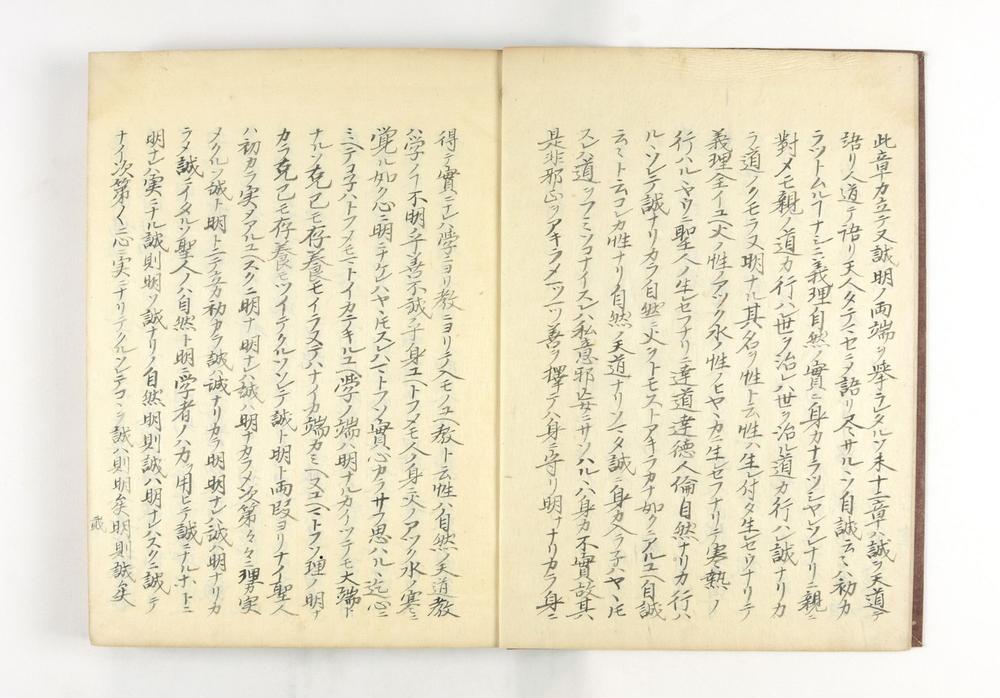 此章カ立テ又誠明ノ両端ヲ挙ラレタルソ末十二章ハ誠ヲ天道テ
語リ人道テ語リ天人タテニヨコニ語リ尽サルヽソ自誠云ミハ初カ
ラツトムルヿナシニ義理自然ノ實ニ身カナラツシヤンナリニ親ニ
對メモ親ノ道カ行ハレ世ヲ治レハ世ヲ治ル道カ行ハレ誠ナリカ
ラ道ノクモラヌ明ナル其名ヲ性ト云性ハ生レ付タ生レセウナリテ
義理全イユヘ火ノ性ノアツク水ノ性ノヒヤヽカニ生レセフナリテ寒熱ノ
行ハルヽヤウニ聖人ノ生レセフナリニ達道達徳人倫自然ナリカ行ハ
ルヽソレテ誠ナリカラ自然ニ火ヲトモストアキラカナ如クニアルユヘ自誠
云ミト云コレカ性ナリ自然ノ天道ナリソニタ誠ニ身カ入ラ子ハヤヽトモ
スレハ道ヲフミソコナイスレハ私意邪妄ニサソハルヽハ身カ不實故其
是非邪正ヲアキラメツヽ善ヲ擇テハ身ニ守リ明ナナリカラ身ニ
得テ實ニナレハ學ニヨリ教ニヨリテ入モノユヘ教ト云性ハ自然ノ天道教
ハ学ノヿ不明乎善不誠乎身ユヘトフメモ人ノ身ヘ火ノアツク水ノ寒ミ
覚ル如ク心ニ明ニナケレハヤヽトモスレハニトフソ實心カラサフ思ハルヽ迄心ニ
ミテヨ子ハトフメモニトイカニキルユヘ学ノ端ハ明ナルカ一ツテモ大端ト
ナルソ克己モ存養モイラヌテハナイカ端カミヘヌユヘニトフソ理ノ明ナ
カラ克己モ存養モツイテクルソソレテ誠ト明ト両段ヨリナイ聖人
ハ初カラ実メアルユヘスクニ明ナ明ナレハ誠ハ明ナカラメ次第々々ニ理カ実
メクルソ誠ト明トニテ立カ初カラ誠ハ誠ナリカラ明明ナレハ誠ハ明ナリカ
ラメ誠ニイタルソ聖人ノハ自然ト明ニ學者ノハ力ヲ用ヒテ誠ニナルホトニ
明ナレハ実ニナル誠則明ソ誠ナリノ自然明則誠ハ明ナレハスクニ誠テ
ナイ次第〱ニ心ニ実ニナリテクルソソレテココヲ誠ハ則明矣明則誠矣